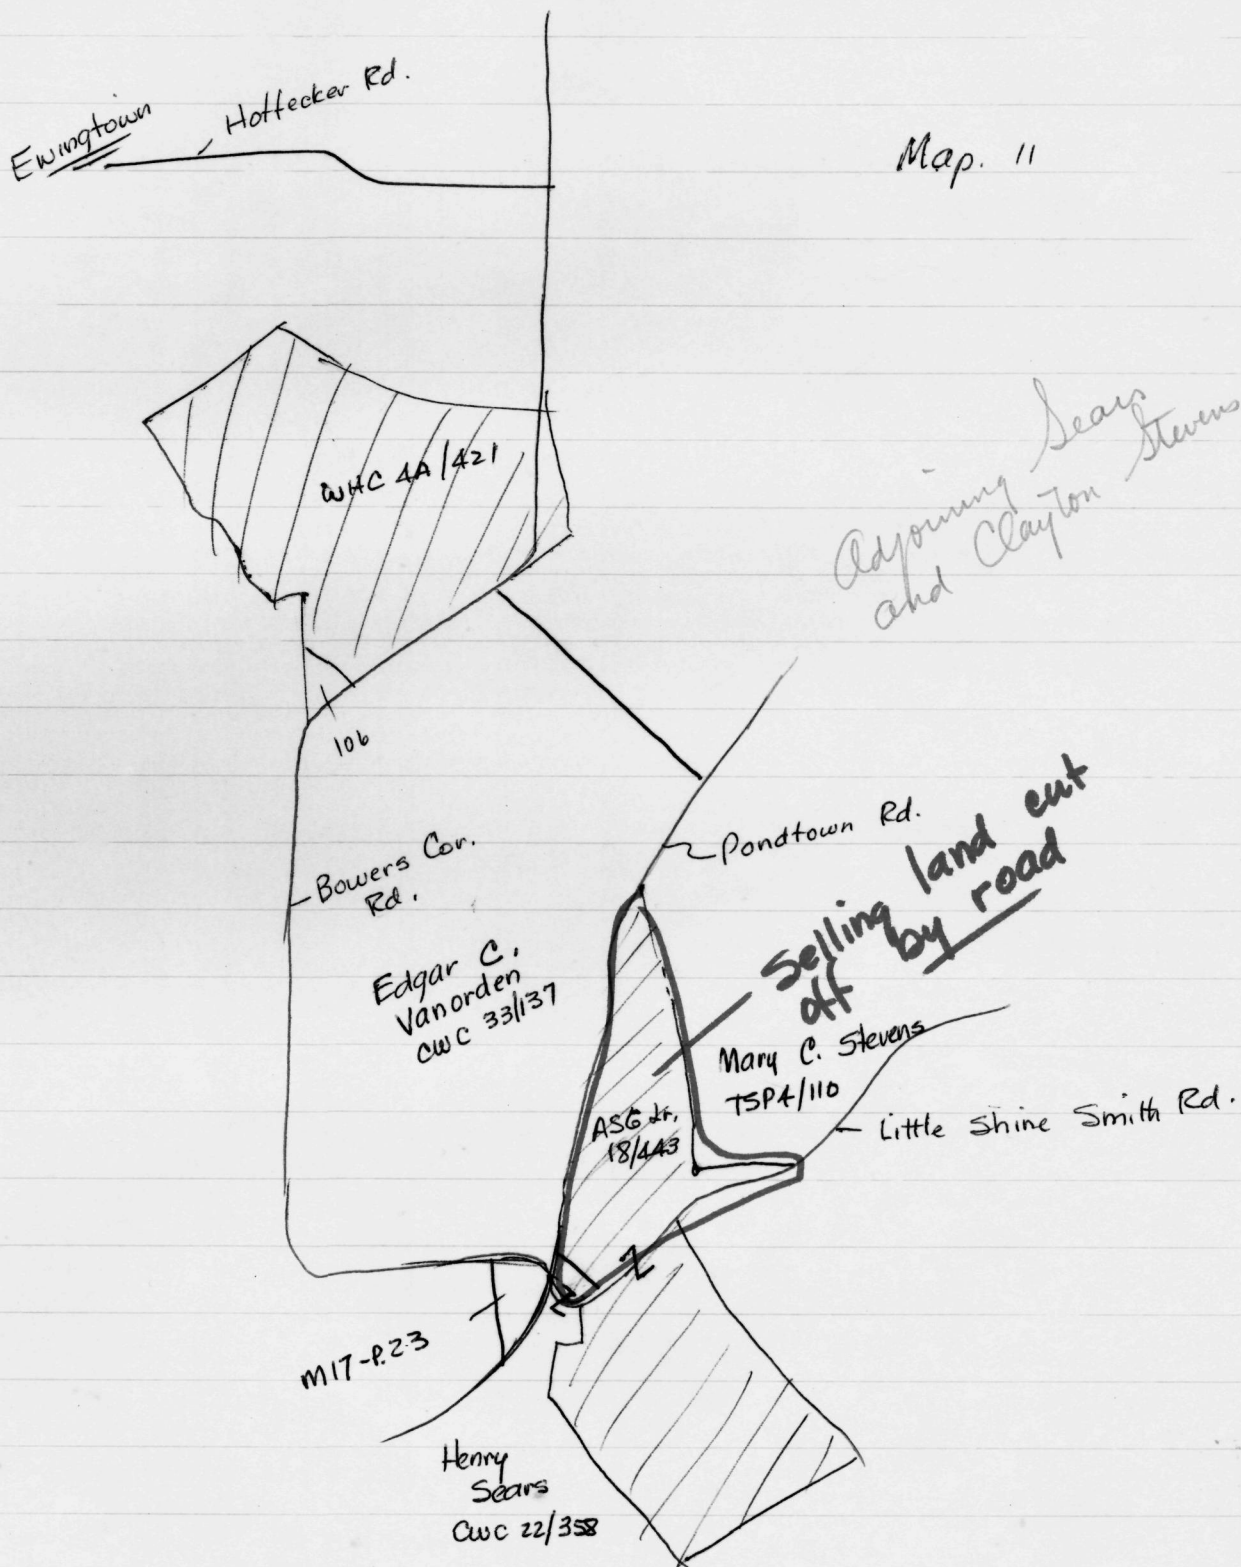 Ewingtown
Hoffecker Rd.
Map. 11
WHC 4A/421
Adjoining Sears
and Clayton Stevens
106
Bowers Cor.
Rd.
Pondtown Rd.
Selling land cut
off by road
Edgar C.
Vanorden
CWC 33/137
Mary C. Stevens
TSP4/110
ASG Jr.
18/443
Little Shine Smith Rd.
M17-P.23
Henry
Sears
CWC 22/358